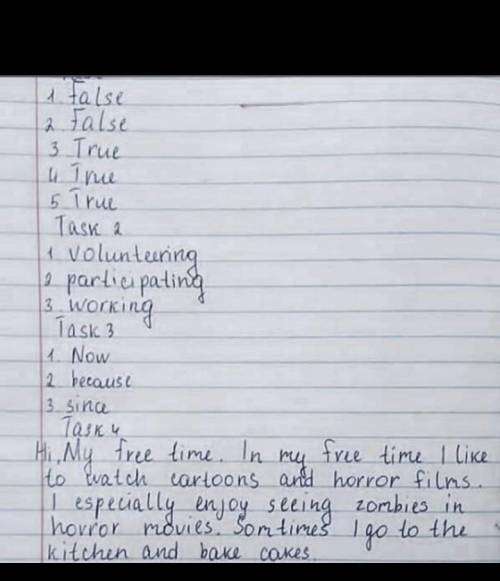 1. False
2. False
3 True
4 True
5 True
Task 2
1 volunteering
2 participating
3 working
Task 3
1. Now
2 because
3 since
Task 4
Hi, My free time. In my free time I like
to watch cartoons and horror films.
I especially enjoy seeing zombies in
horror movies. Somtimes I go to the
kitchen and bake cakes.